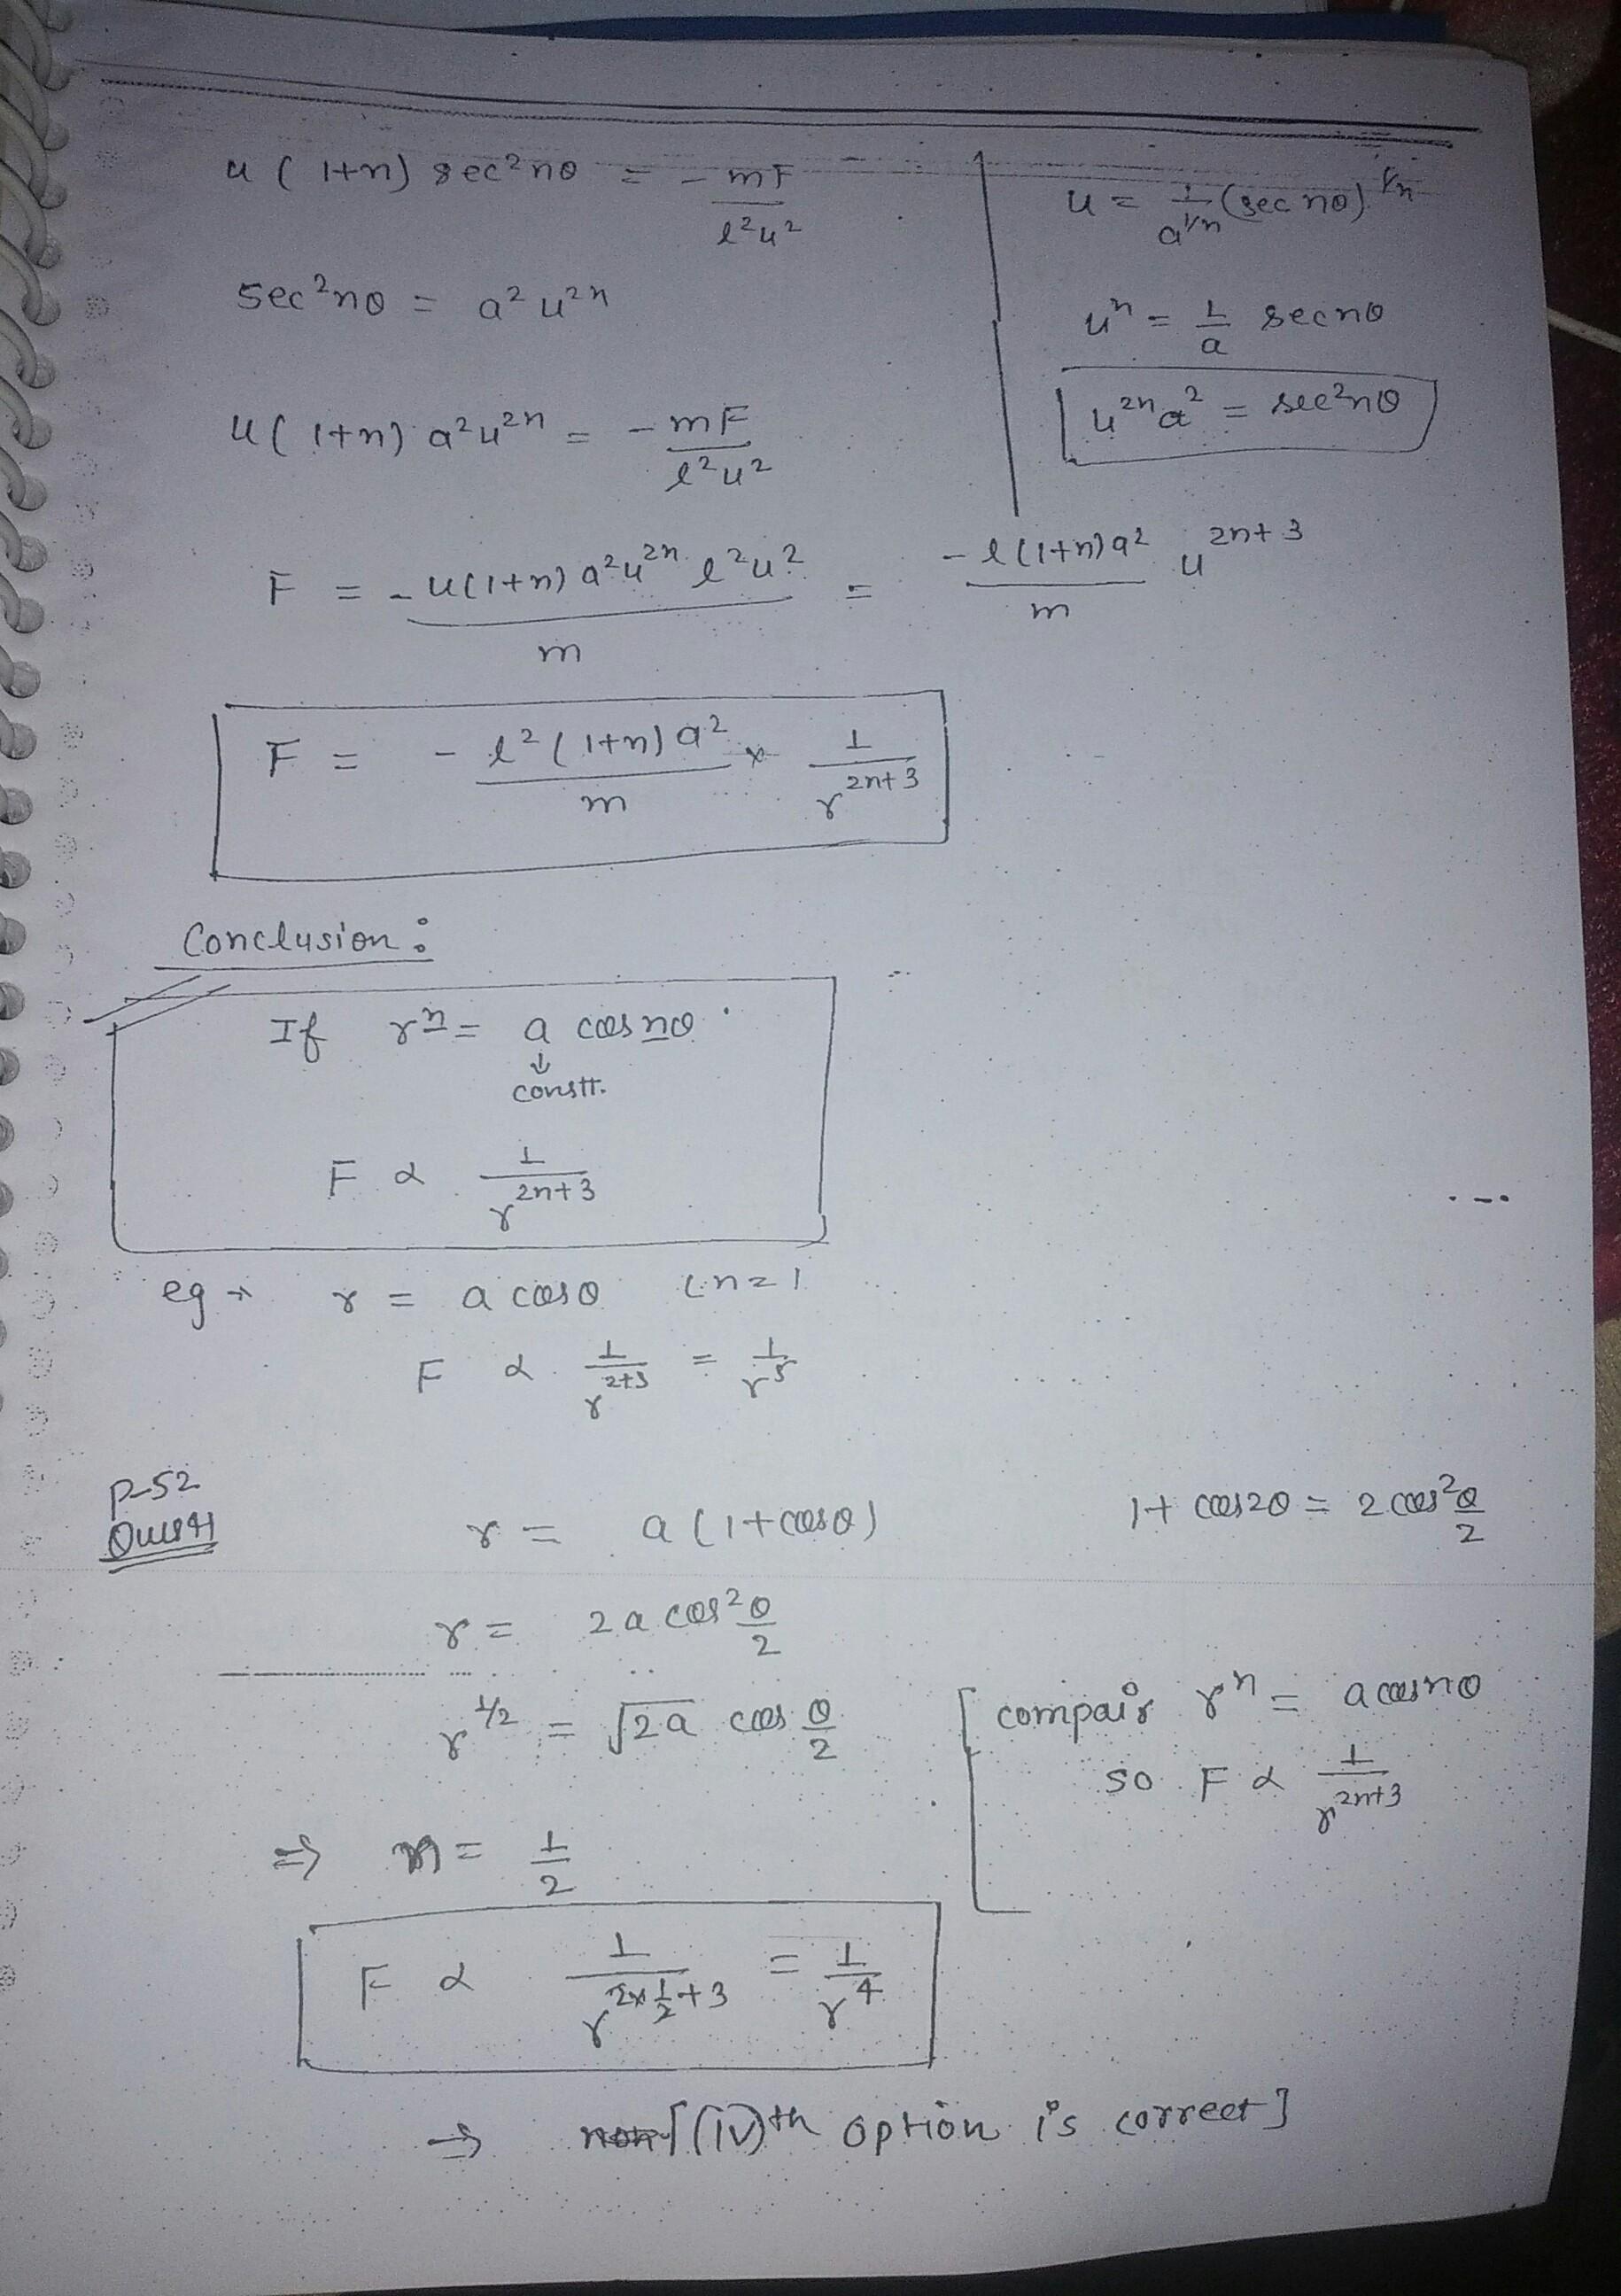 u (1+n) sec²nθ = - mF / l²u²
sec²nθ = a²u²ⁿ
u (1+n) a²u²ⁿ = - mF / l²u²
u = 1/a^(1/n) (sec nθ)^(1/n)
uⁿ = 1/a sec nθ
u²ⁿa² = sec²nθ
F = - u(1+n) a²u²ⁿ l²u² / m = - l(1+n)a² / m u^(2n+3)
F = - l²(1+n)a² / m × 1 / r^(2n+3)
Conclusion :
If rⁿ = a cos nθ
↓
constt.
F ∝ 1 / r^(2n+3)
eg → r = a cosθ (n=1
F ∝ 1 / r^(2+3) = 1 / r⁵
P-52
Ques 41
r = a (1+cosθ)
1+ cos2θ = 2 cos² θ/2
r = 2a cos² θ/2
r^(1/2) = √2a cos θ/2
[ compair rⁿ = a cos nθ
so F ∝ 1 / r^(2n+3)
⇒ n = 1/2
F ∝ 1 / r^(2×1/2+3) = 1 / r⁴
⇒ [(iv)th option is correct]